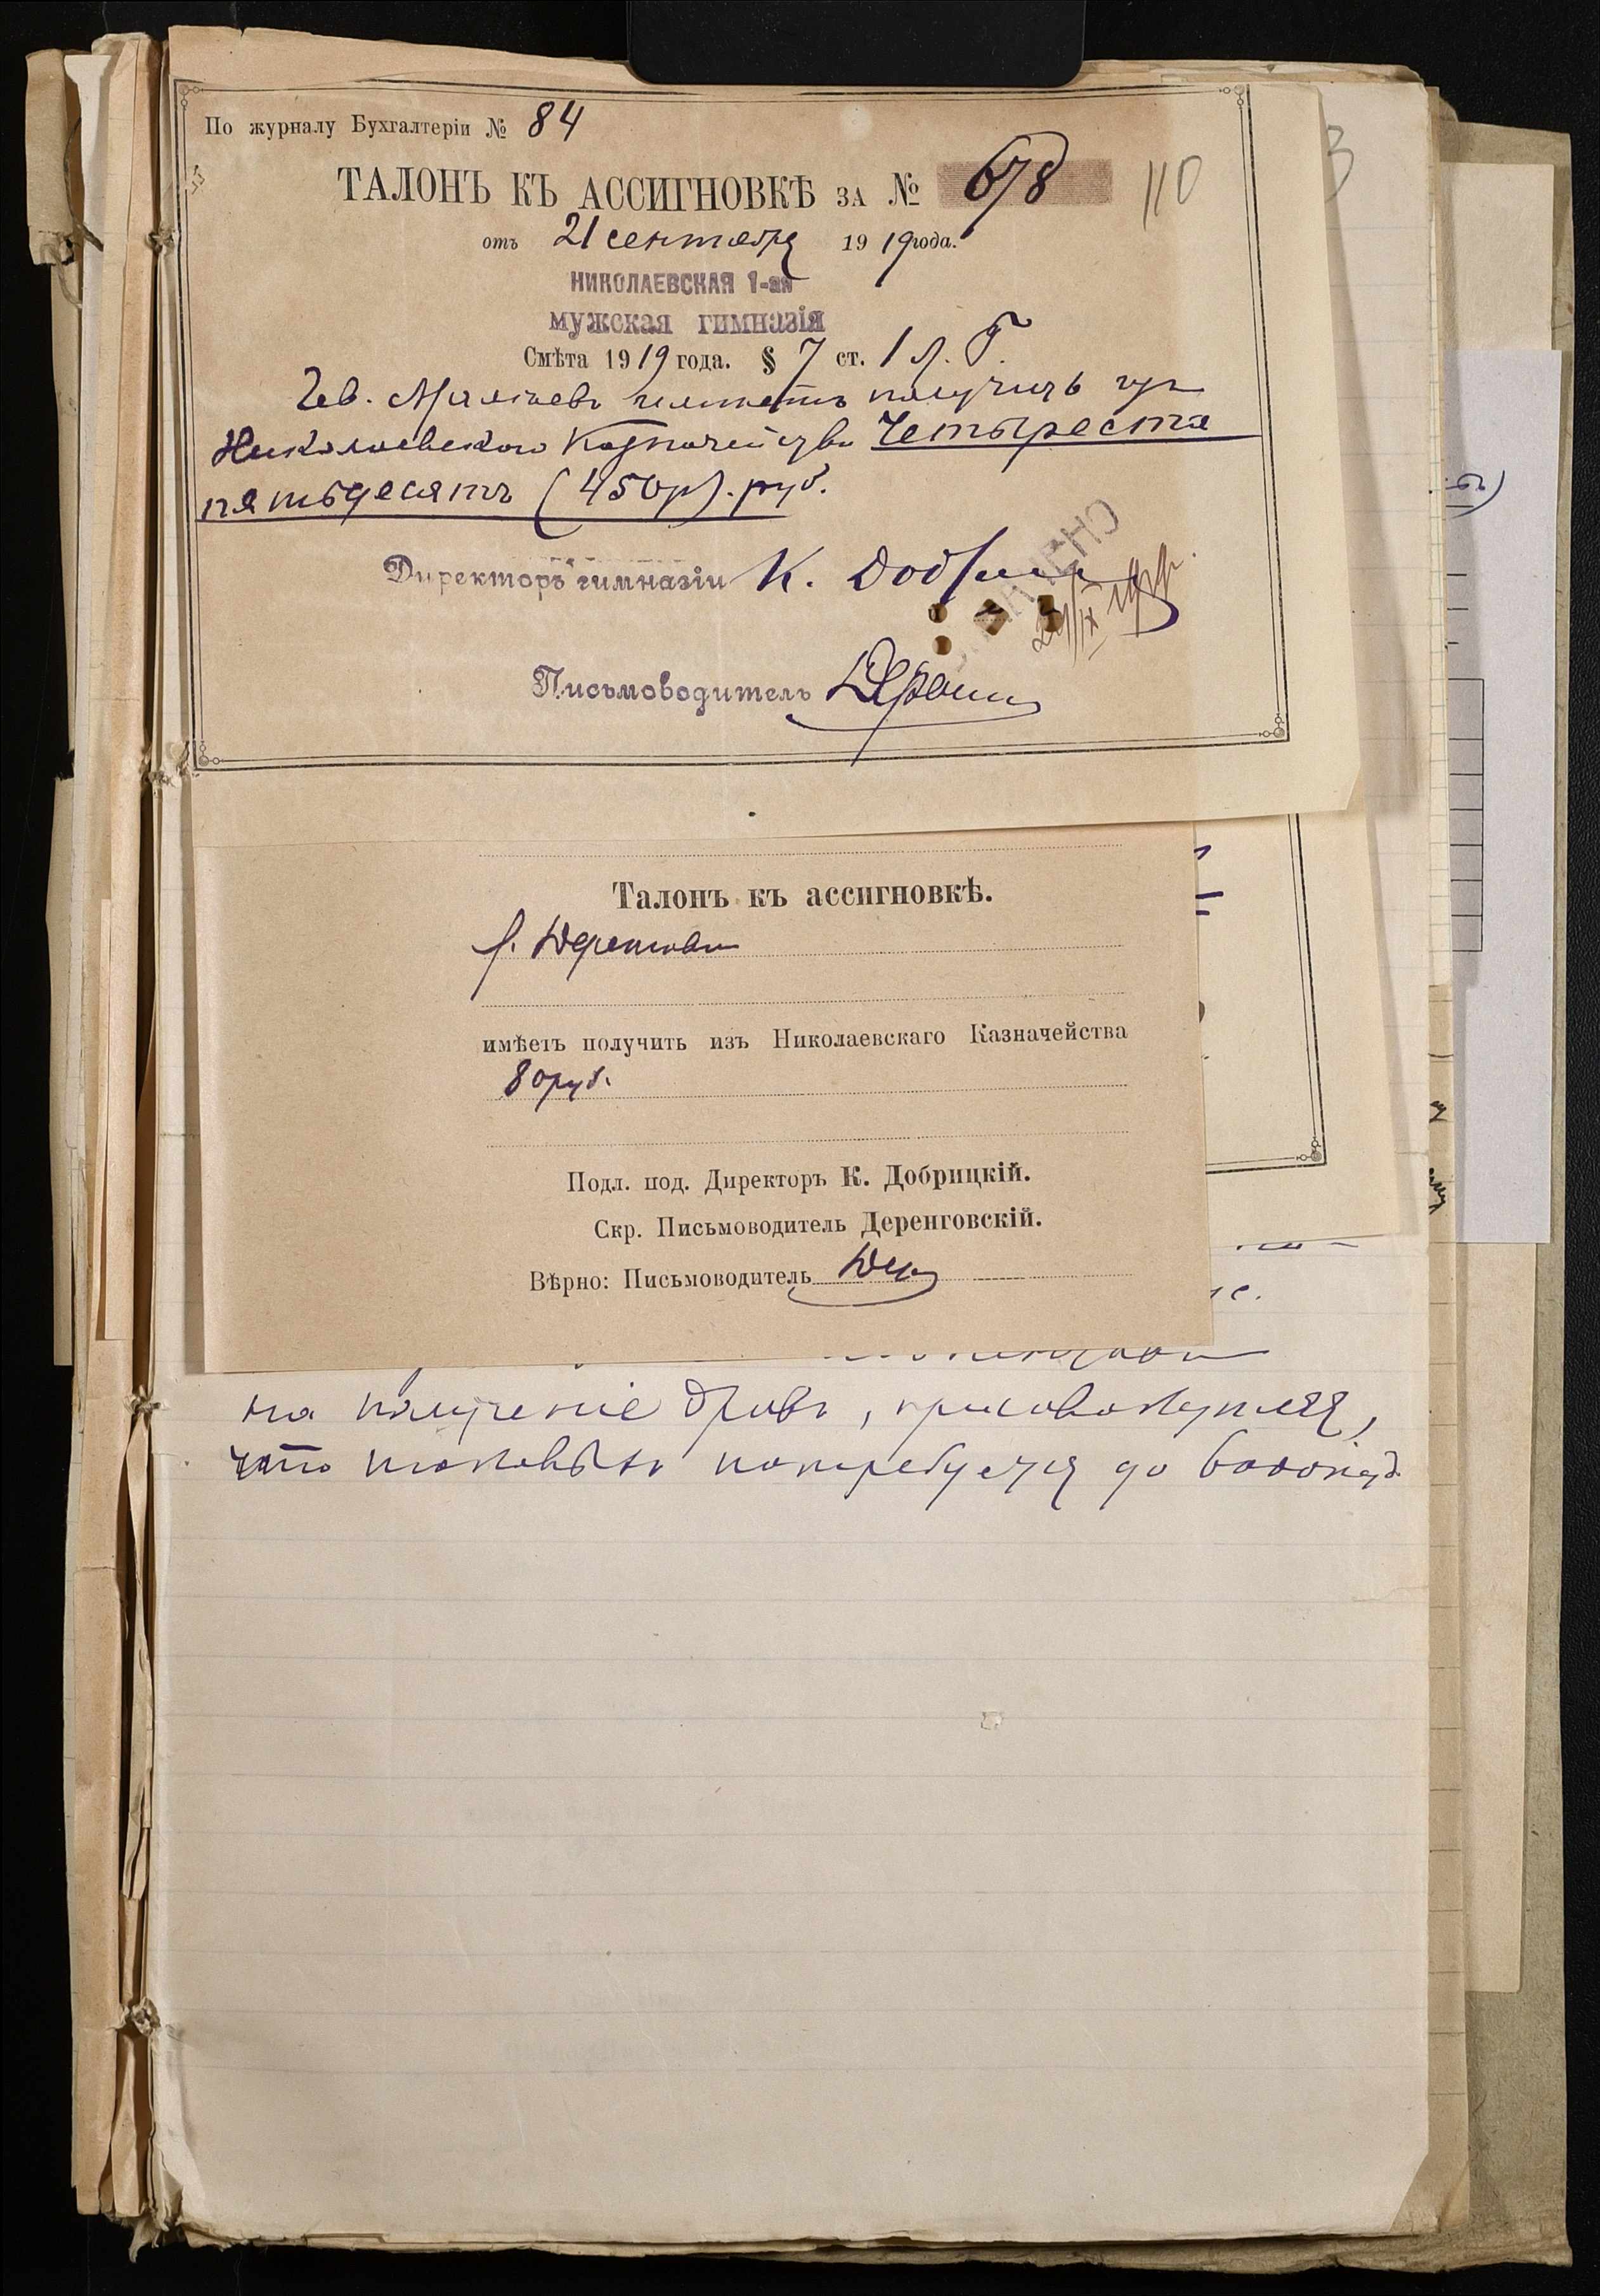 По журналу Бухгалтеріи № 84
ТАЛОНЪ КЪ АССИГНОВКѢ ЗА № 678
110
3
отъ 21 сентября 1919 года.
НИКОЛАЕВСКАЯ 1-ая
мужская гимназія
Смѣта 1919 года. § 7 ст. 1 л. Г.
имѣетъ получить изъ
Николаевскаго Казначейства Четыреста
пятьдесятъ (450 р). руб.
Директоръ гимназіи К.
Письмоводитель
Талонъ къ ассигновкѣ.
имѣетъ получить изъ Николаевскаго Казначейства
80 руб.
Подл. под. Директоръ К. Добрицкій.
Скр. Письмоводитель Деренговскій.
Вѣрно: Письмоводитель Дер
на полученіе дровъ, присовокупляя,
что таковыхъ потребуется до 6000 пуд.